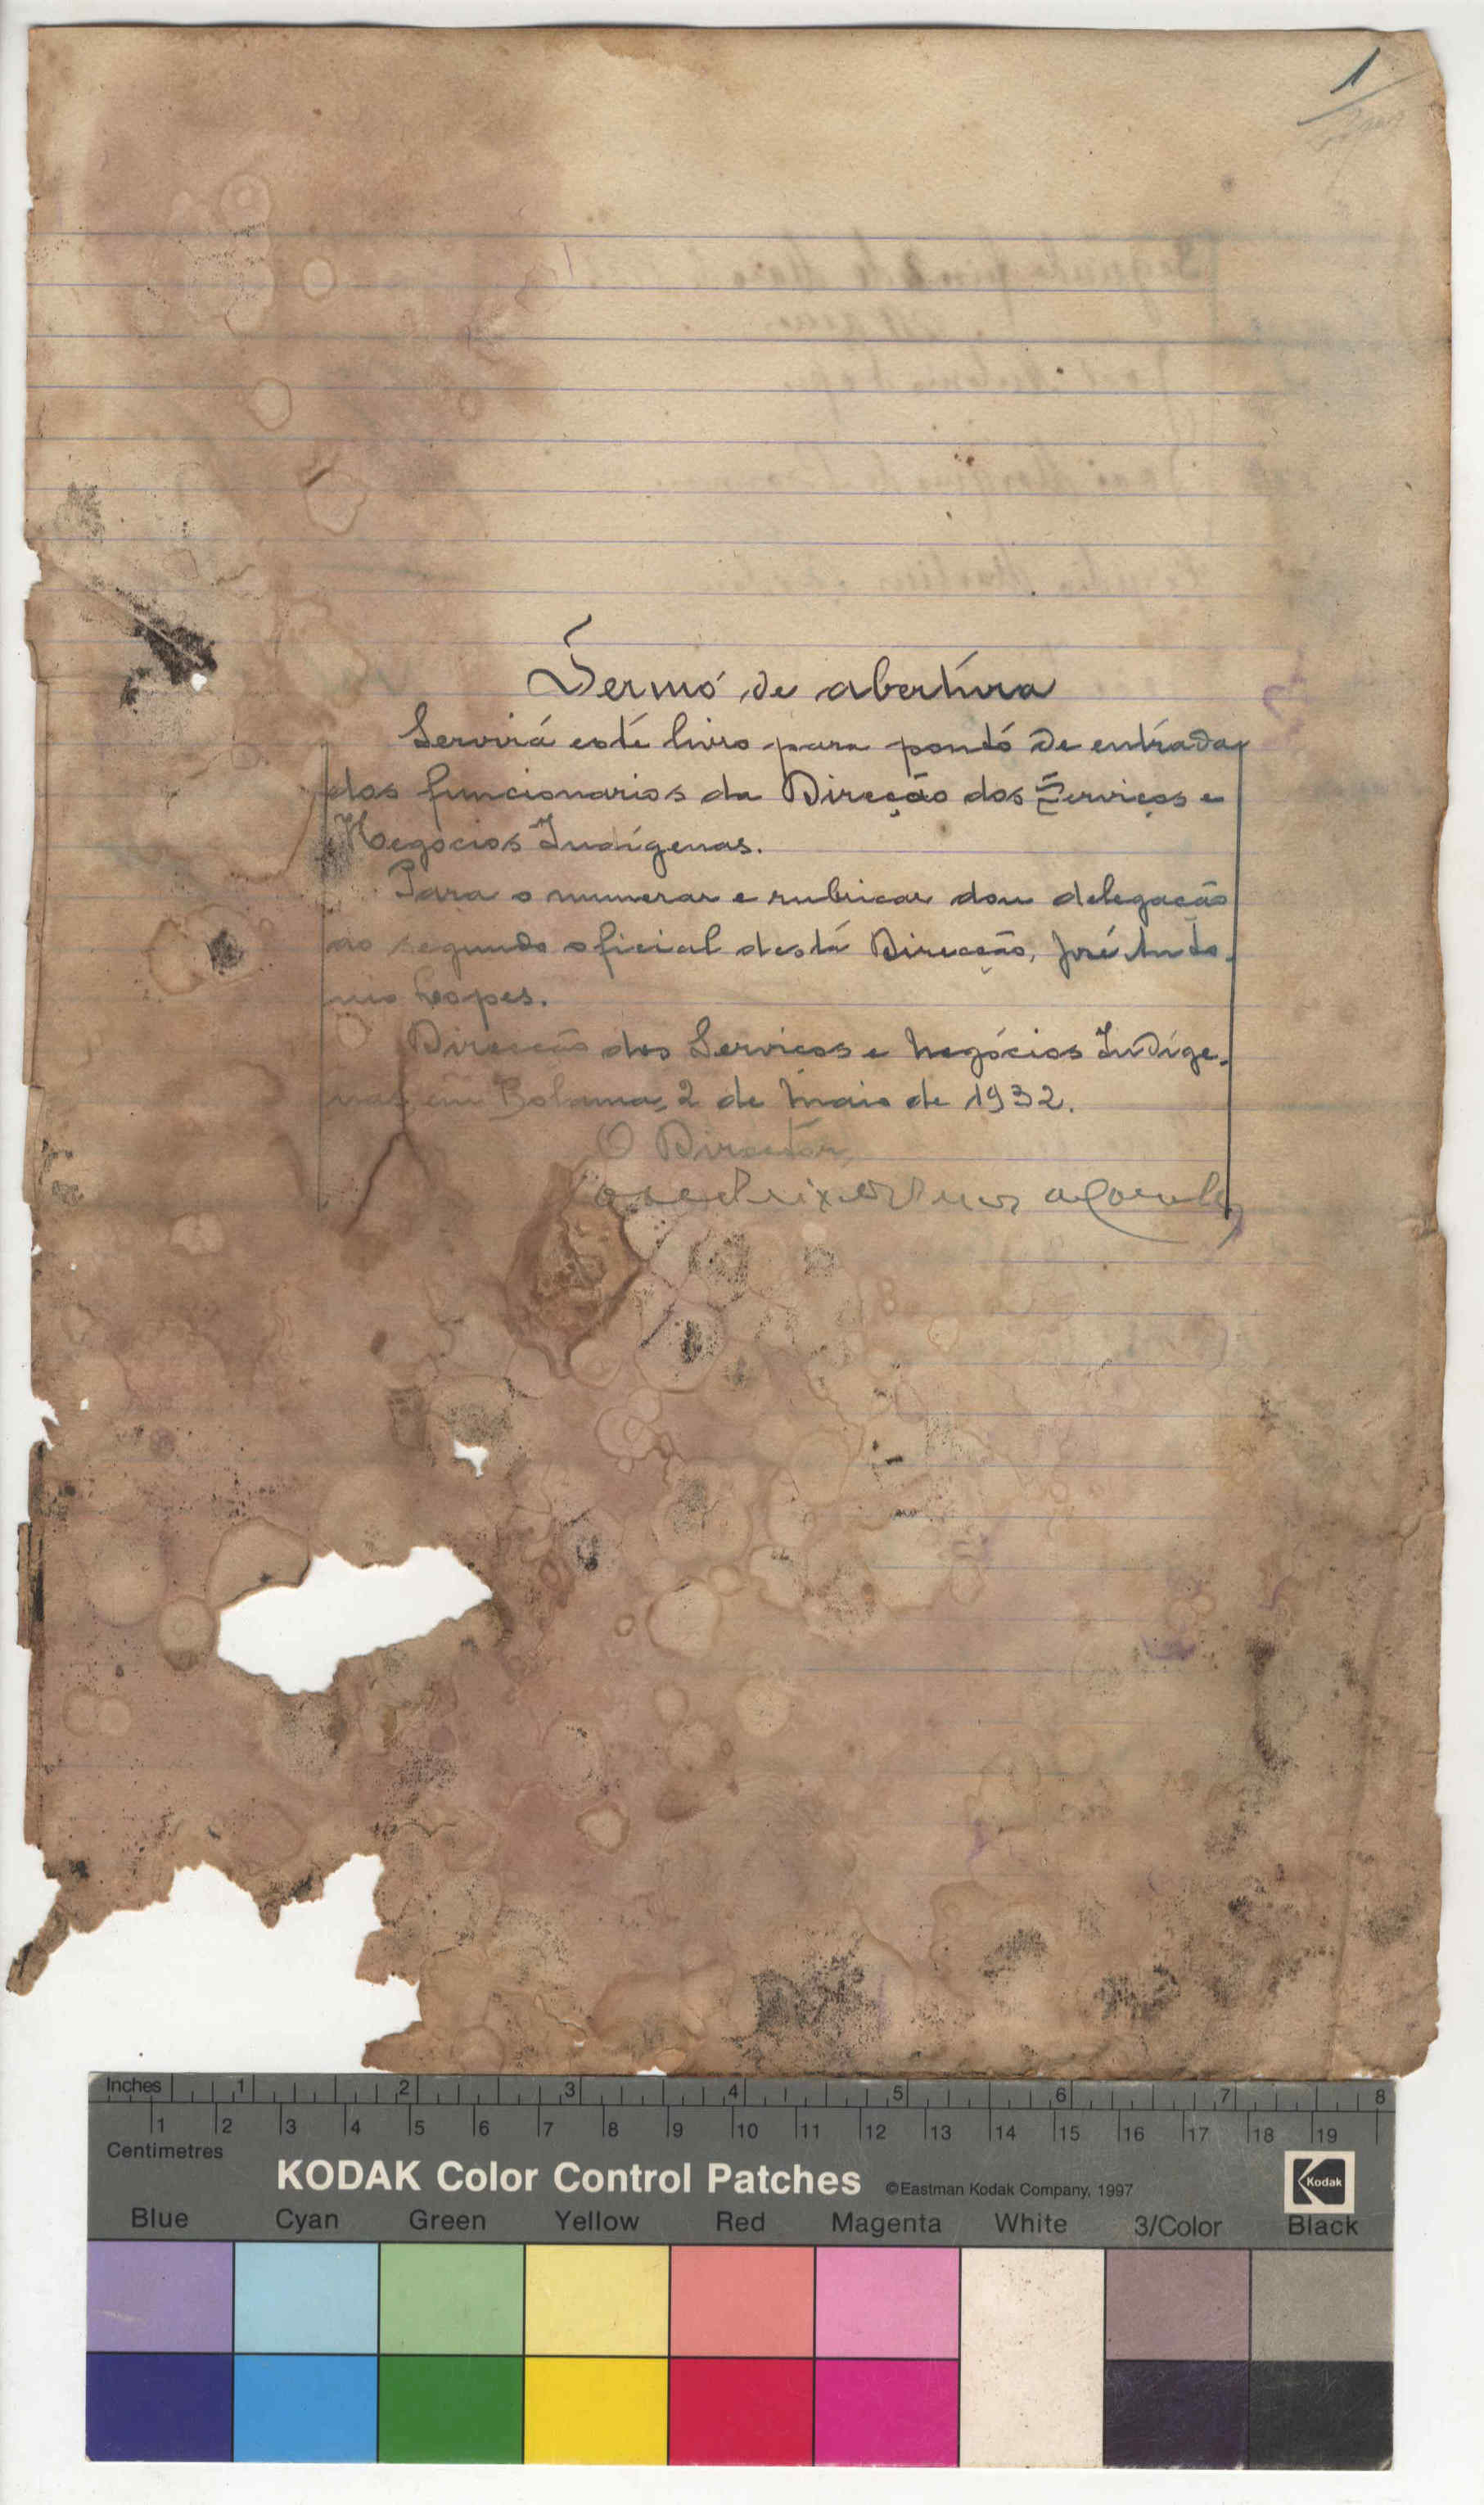 1
Termo de abertura
Servirá este livro para ponto de entrada
dos funcionarios da Direcção dos Serviços e
Negócios Indígenas.
Para o numerar e rubricar dou delegação
ao segundo oficial desta Direcção, José Anto-
nio Lopes.
Direcção dos Serviços e Negócios Indige-
nas, em Bolama, 2 de Maio de 1932.
O Director,
Inches 1 2 3 4 5 6 7 8
1 2 3 4 5 6 7 8 9 10 11 12 13 14 15 16 17 18 19
Centimetres
KODAK Color Control Patches ©Eastman Kodak Company, 1997 Kodak
Blue Cyan Green Yellow Red Magenta White 3/Color Black